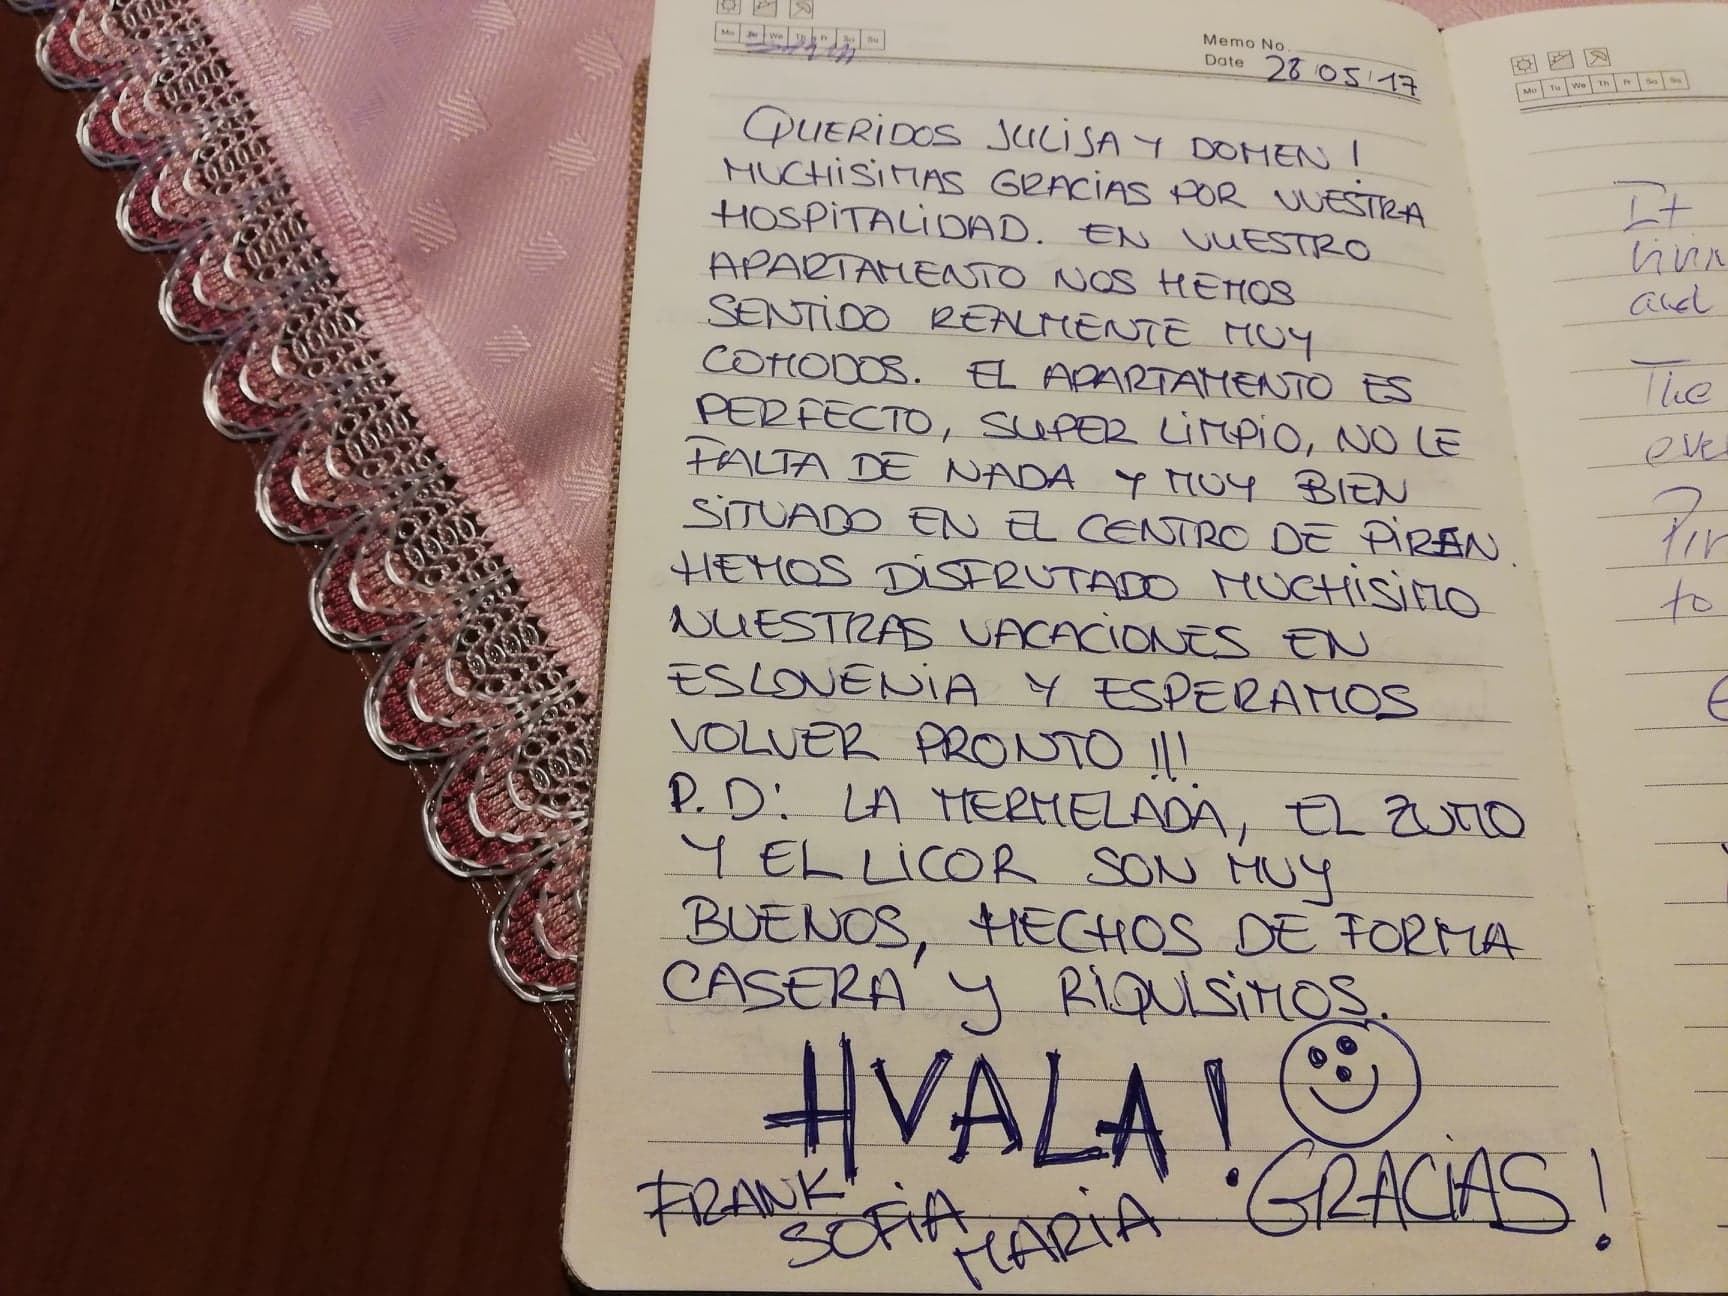 Mo Tu We Th Fr Sa Su
Memo No.
Date 28 05 17
QUERIDOS JULISA Y DOMEN!
MUCHISIMAS GRACIAS POR VUESTRA
HOSPITALIDAD. EN VUESTRO
APARTAMENTO NOS HEMOS
SENTIDO REALMENTE MUY
COMODOS. EL APARTAMENTO ES
PERFECTO, SUPER LIMPIO, NO LE
FALTA DE NADA Y MUY BIEN
SITUADO EN EL CENTRO DE PIRAN.
HEMOS DISFRUTADO MUCHISIMO
NUESTRAS VACACIONES EN
ESLOVENIA Y ESPERAMOS
VOLVER PRONTO!!!
P.D: LA MERMELADA, EL ZUMO
Y EL LICOR SON MUY
BUENOS, HECHOS DE FORMA
CASERA Y RIQUISIMOS.
HVALA!
GRACIAS!
FRANK
SOFIA
MARIA
Mo Tu We Th Fr Sa Su
It
and
The
to